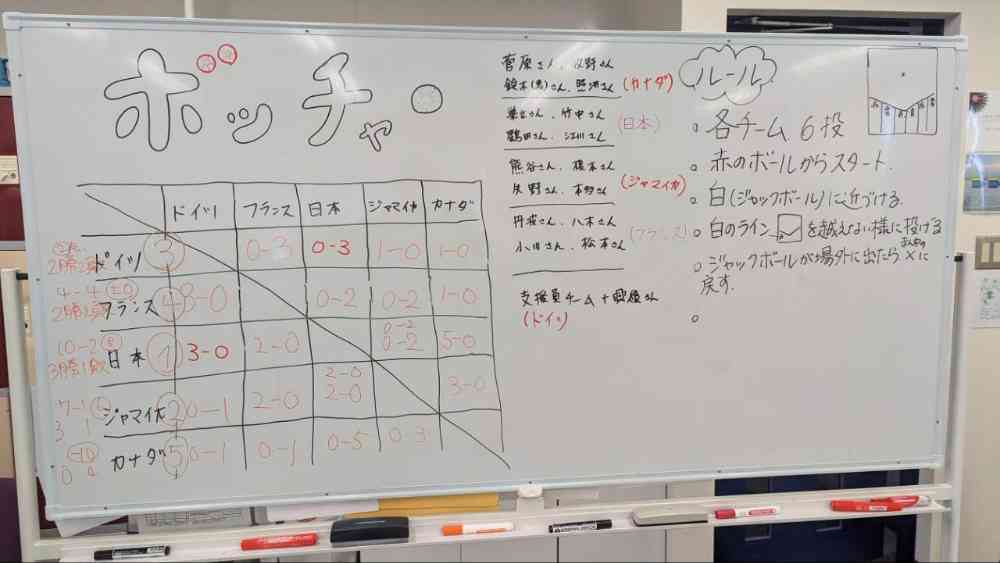 ボッチャ
ドイツ フランス 日本 ジャマイカ カナダ
ドイツ ③ 0-3 0-3 1-0 1-0
4-4 ±0
フランス ④ 3-0 0-2 0-2 1-0
0-2
10-2 ⑧ 日本 ① 3-0 2-0 0-2 5-0
3勝1敗
2-0
7-1 ジャマイカ ② 0-1 2-0 2-0 3-0
3 1
-10 カナダ ⑤ 0-1 0-1 0-5 0-3
0 4
菅原さん、牧野さん
鈴木(恵)さん、 (カナダ)
さん、竹中さん
鶴田さん、江川さん (日本)
熊谷さん、橋本さん
矢野さん、本多さん (ジャマイカ)
丹波さん、八木さん
小川さん、松本さん (フランス)
支援員チーム+ さん
(ドイツ)
ルール
。各チーム 6投
。赤のボールからスタート.
。白(ジャックボール)に近づける.
。白のライン を越えない様に投げる
。ジャックボールが場外に出たら ×に
戻す.
。